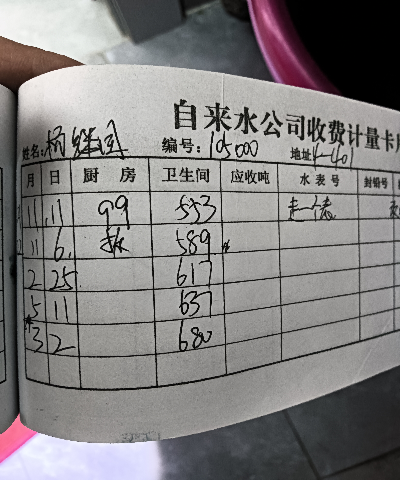 自来水公司收费计量卡
姓名: 杨继国 编号: 105000 地址 4-401
月 日 厨房 卫生间 应收吨 水表号 封铅号
11 11 99 553 走一个表
11 6 拆 589
2 25 617
5 11 637
3 2 680